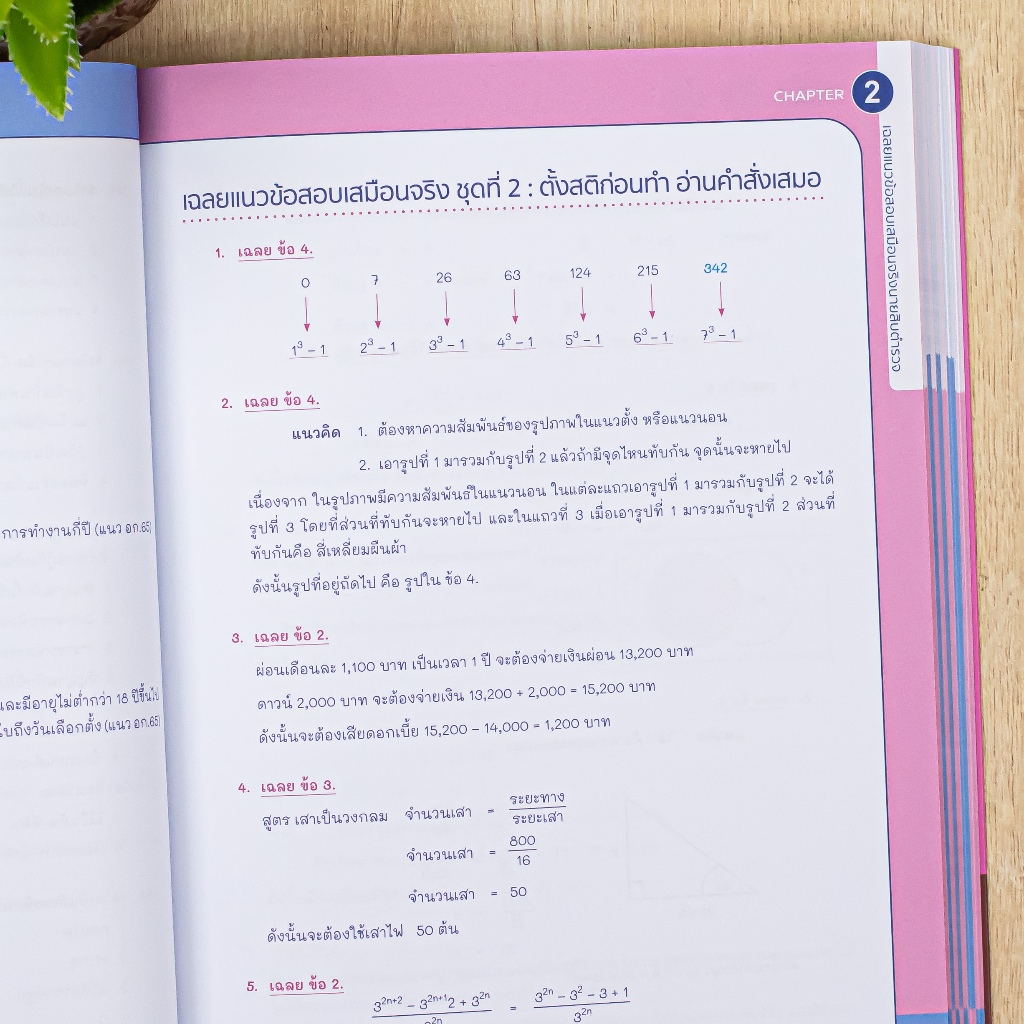 การทำงานกี่ปี (แนว อก.65)
และมีอายุไม่ต่ำกว่า 18 ปีขึ้นไป
ถึงวันเลือกตั้ง (แนว อก.65)
CHAPTER 2
เฉลยแนวข้อสอบเสมือนจริงนายสิบตำรวจ
เฉลยแนวข้อสอบเสมือนจริง ชุดที่ 2 : ตั้งสติก่อนทำ อ่านคำสั่งเสมอ
1. เฉลย ข้อ 4.
0 7 26 63 124 215 342
1³ – 1 2³ – 1 3³ – 1 4³ – 1 5³ – 1 6³ – 1 7³ – 1
2. เฉลย ข้อ 4.
แนวคิด 1. ต้องหาความสัมพันธ์ของรูปภาพในแนวตั้ง หรือแนวนอน
2. เอารูปที่ 1 มารวมกับรูปที่ 2 แล้วถ้ามีจุดไหนทับกัน จุดนั้นจะหายไป
เนื่องจาก ในรูปภาพมีความสัมพันธ์ในแนวนอน ในแต่ละแถวเอารูปที่ 1 มารวมกับรูปที่ 2 จะได้
รูปที่ 3 โดยที่ส่วนที่ทับกันจะหายไป และในแถวที่ 3 เมื่อเอารูปที่ 1 มารวมกับรูปที่ 2 ส่วนที่
ทับกันคือ สี่เหลี่ยมผืนผ้า
ดังนั้นรูปที่อยู่ถัดไป คือ รูปใน ข้อ 4.
3. เฉลย ข้อ 2.
ผ่อนเดือนละ 1,100 บาท เป็นเวลา 1 ปี จะต้องจ่ายเงินผ่อน 13,200 บาท
ดาวน์ 2,000 บาท จะต้องจ่ายเงิน 13,200 + 2,000 = 15,200 บาท
ดังนั้นจะต้องเสียดอกเบี้ย 15,200 – 14,000 = 1,200 บาท
4. เฉลย ข้อ 3.
สูตร เสาเป็นวงกลม จำนวนเสา = ระยะทาง
ระยะเสา
จำนวนเสา = 800
16
จำนวนเสา = 50
ดังนั้นจะต้องใช้เสาไฟ 50 ต้น
5. เฉลย ข้อ 2.
3²ⁿ⁺² – 3²ⁿ⁺¹2 + 3²ⁿ = 3²ⁿ – 3² – 3 + 1
3²ⁿ 3²ⁿ